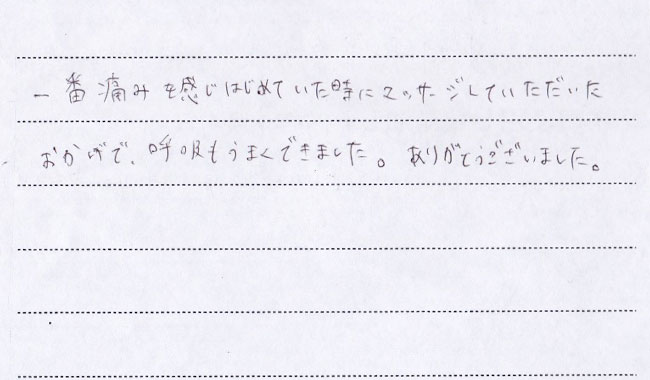 一番痛みを感じはじめていた時にマッサージしていただいた
おかげで、呼吸もうまくできました。ありがとうございました。